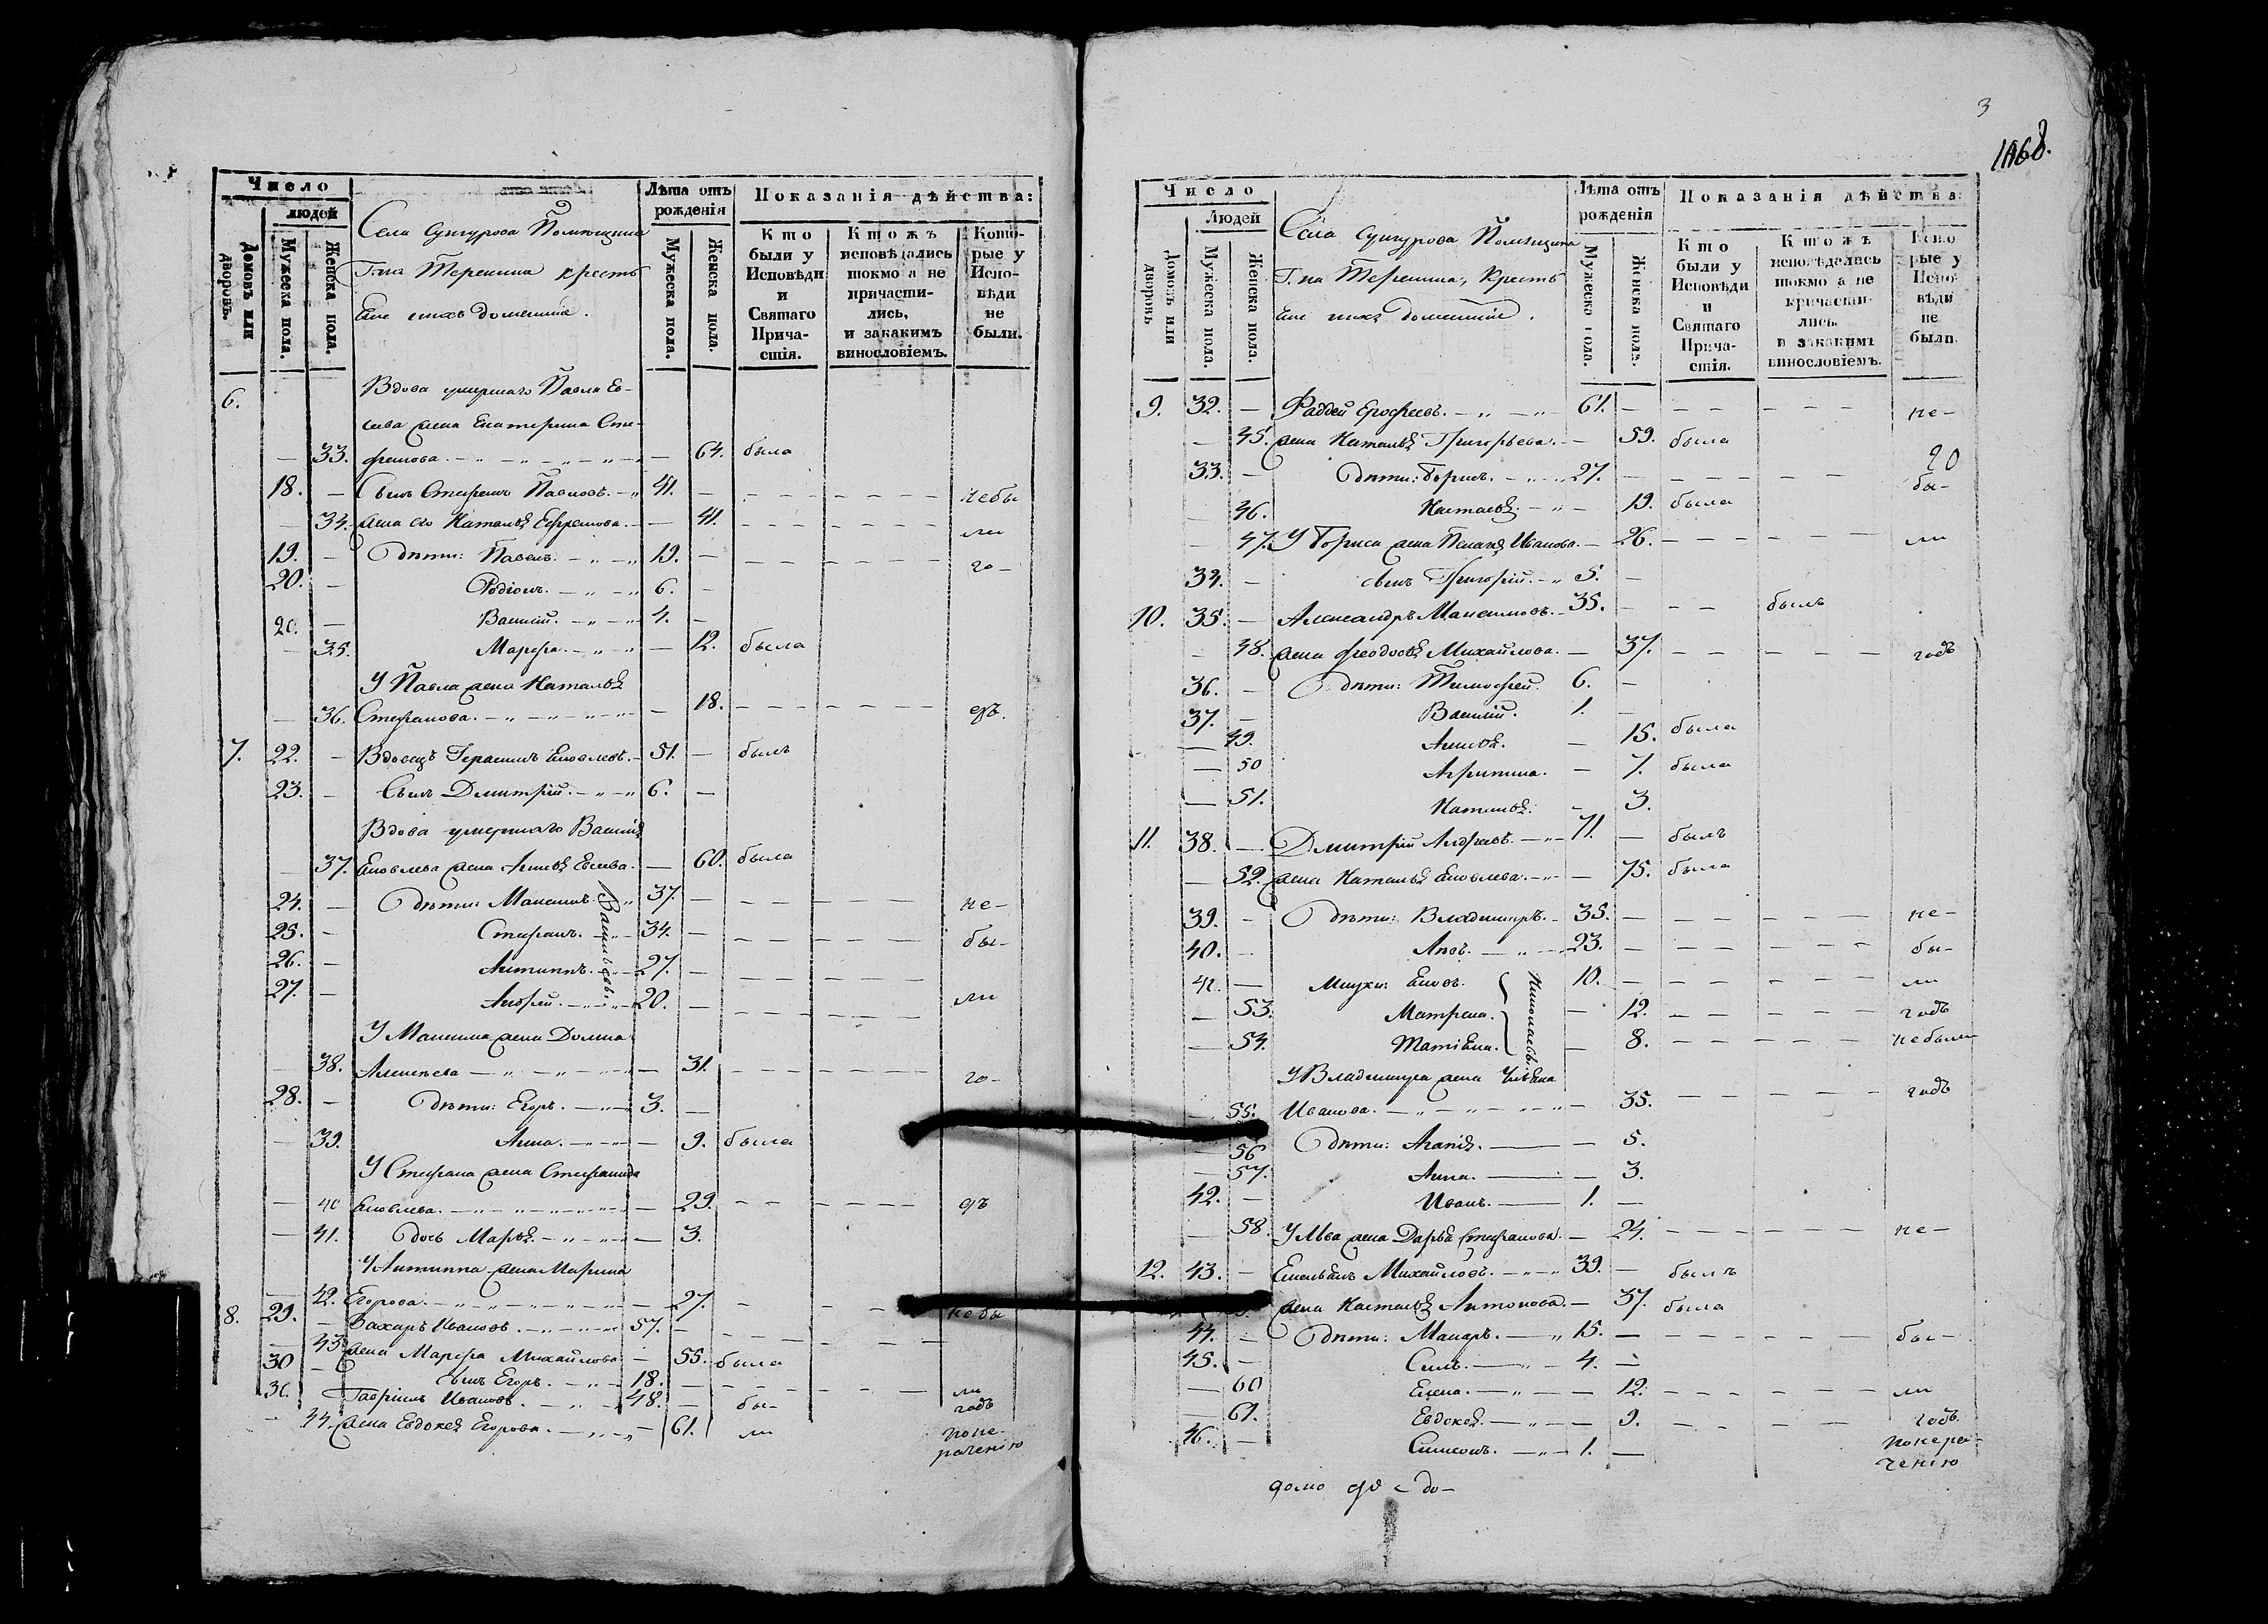 Число
людей
Домовъ или дворовъ.
Мужеска пола.
Женска пола.
Села Сунгурова Помещика
Г.на Теренина крестьяне ихъ домовнiи.
Лѣта отъ рожденія
Мужеска пола.
Женска пола.
Показанія дѣйства:
Кто были у Исповѣди и Святаго Причастія.
Ктожъ исповѣдались токмо а не причастились, и закакимъ винословіемъ.
Которые у Исповѣди не были.
6. Вдова умершаго Павла Ев-
сеева жена Екатерина Сте-
— 33. фанова. — 64. была
18. — Сынъ Стефанъ Павловъ. 41. — небы
— 34. жена его Наталья Ефремова. — 41. ли
19. — Дѣти: Павелъ. 19. — го-
20. — Родіонъ. 6. —
20. — Василій. 4. —
— 35. Марфа. — 12. была
У Павла жена Наталья
— 36. Стефанова. — 18. дъ.
7. 22. — Вдовецъ Герасимъ Яковлевъ. 51. — былъ
23. — Сынъ Дмитрій. 6. —
Вдова умершаго Василія
— 37. Яковлева жена Анисья Евсева. — 60. была
24. — Дѣти: Максимъ. 37. — не-
25. — Стефанъ. 34. — бы-
26. — Антиппъ. 27. —
27. — Андрей. 20. — ли
Васильевы.
У Максима жена Домна
— 38. Алексеева — 31. го-
28. — Дѣти: Егоръ. 3. —
— 39. Анна. — 9. была
У Стефана жена Стефанида
— 40 Яковлева. — 29. дъ
— 41. дочь Марья. — 3.
У Антиппа жена Марина
— 42. Егорова. — 27. небы
8. 29. — Захаръ Ивановъ. 57. —
— 43. жена Марфа Михайлова — 55. была
30 — сынъ Егоръ. 18. — ли
30. Гавріилъ Ивановъ. 48. — бы- годъ
— 44. жена Евдокея Егорова. — 61. ли поне-
раченію
3
1068.
Число
Людей
Домовъ или дворовъ
Мужеска пола.
Женска пола.
Села Сунгурова Помещика
Г.на Теренина, крестьяне ихъ домовніи.
Лѣта отъ рожденія
Мужеска пола.
Женска пола.
Показанія дѣйства:
Кто были у Исповѣди и Святаго Причастія.
Ктожъ исповѣдались токмо а не причастились. и закакимъ винословіемъ.
Которые у Исповѣди не были.
9. 32. — Фаддей Ерофеевъ. 61. — не-
— 45. жена Наталья Григорьева. — 59. была
33. — Дѣти: Борисъ. 27. — бы-
20
— 46. Настасья. — 19. была
— 47. У Бориса жена Пелагея Иванова. — 26. ли
34. — сынъ Григорій. 5. —
10. 35. — Александръ Максимовъ. 35. — былъ
— 48. жена Феодосья Михайлова. — 37. годъ
36. — Дѣти: Тимофей. 6. —
37. — Василій. 1. —
— 49. Анисья. — 15. была
— 50 Агрипина. — 7. была
— 51. Наталья. — 3.
11. 38. — Дмитрій Андреевъ. 71. — былъ
— 52. жена Наталья Яковлева. — 75. была
39. — Дѣти: Владимиръ. 35. — не-
40. — Левъ. 23. — бы-
41. — Внуки: Яковъ. 10. — ли
— 53. Матрена. — 12. годъ
— 54. Татіяна. — 8. небыли
Николаевы.
У Владимира жена Ульяна
— 55. Иванова. — 35. годъ
— 56 Дѣти: Агапія. — 5.
— 57. Анна. — 3.
42. — Иванъ. 1. —
— 58. У Льва жена Дарья Стефанова. — 24. не-
12. 43. — Емельянъ Михайловъ. 39. — былъ
жена Настасья Антонова. — 37. была
44. — Дѣти: Макаръ. 15. — бы-
45. — Силъ. 4. —
— 60 Елена. — 12. ли
— 61. Евдокея. — 9. годъ.
46. — Симеонъ. 1. — понера-
ченію